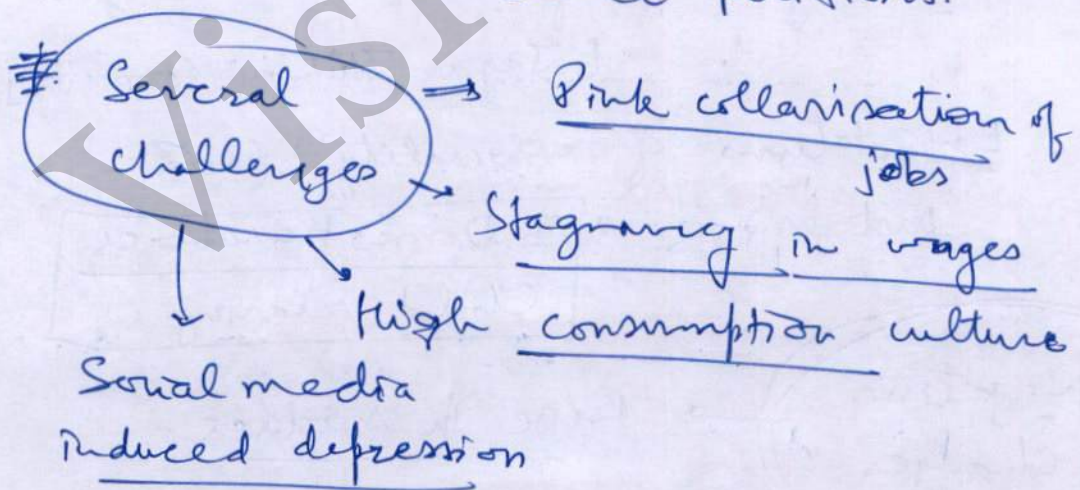 Several
challenges
⇒ Pink collarisation of
jobs
Stagnancy in wages
High consumption culture
Social media
induced depression
Vis